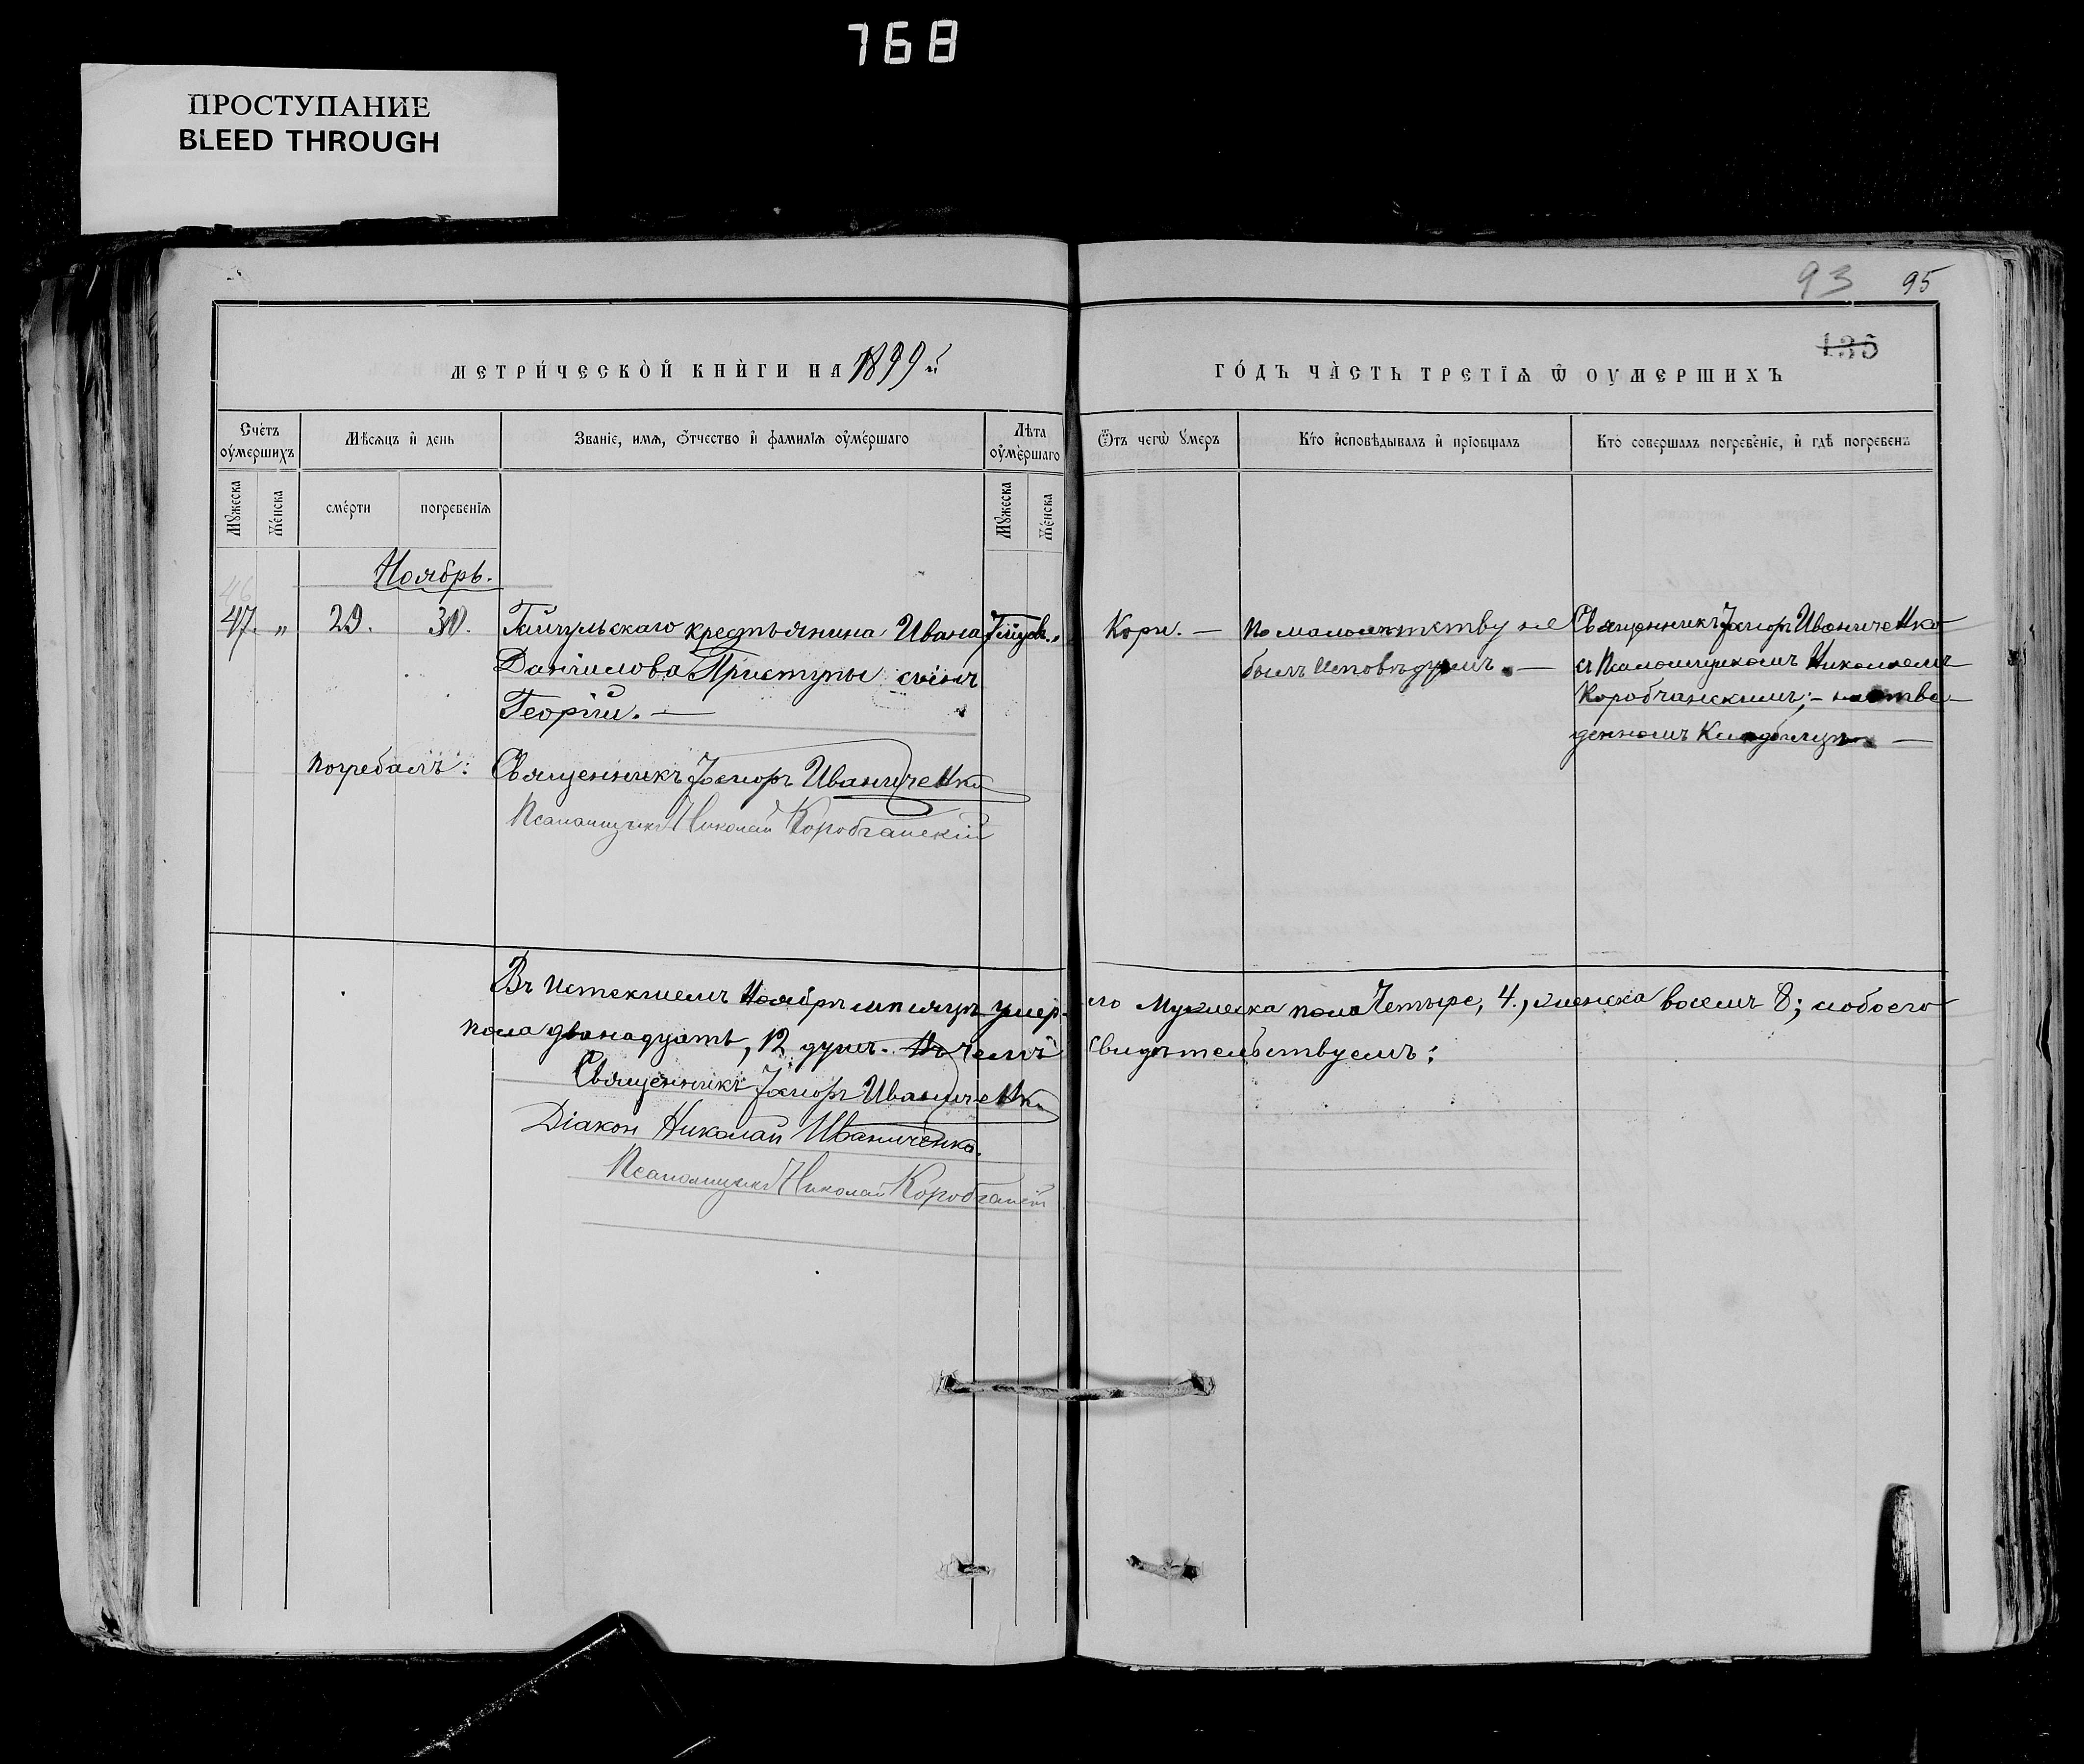 768
ПРОСТУПАНИЕ
BLEED THROUGH
93 95
135
МЕТРИ́ЧЕСКОЙ КНИ́ГИ НА 1899й
ГО́ДЪ ЧА́СТЬ ТРЕТІѦ Ѿ ОУМЕРШИХЪ
Сче́тъ оу҆ме́ршихъ
Мѣ́сѧцъ и҆ день
Зва́нїе, имѧ, ѻ҆́тчество и҆ фамилїѧ оу҆ме́ршаго
Лѣта оу҆ме́ршаго
Ѿтъ чегѡ̀ оу҆́меръ
Кто̀ и҆сповѣ́дывалъ и҆ прїобща́лъ
Кто̀ соверша́лъ погребе́нїе, и҆ гдѣ̀ погребе́нъ
Мꙋ́жеска
Же́нска
сме́рти
погребе́нїѧ
Мꙋ́жеска
Же́нска
Ноябрь.
46
47. „ 29. 30. Гайчульскаго крестьянина Ивана
Даніилова Приступы сынъ
Георгій. —
Кори. —
По малолѣтству не
былъ исповѣдуемъ. —
Священникъ Іаковъ Иваниченко
съ Псаломщикомъ Николаемъ
Коробчанскимъ; —
денномъ Кладбищѣ —
Погребалъ: Священникъ Іаковъ Иваниченко
Псаломщикъ Николай Коробчанскій
Въ истекшемъ Ноябрѣ мѣсяцѣ умерло Мужеска пола Четыре, 4., женска восемъ 8; и обоего
пола двѣнадцать, 12 душъ. Въ чемъ свидѣтельствуемъ:
Священникъ Іаковъ Иваниченко
Діаконъ Николай Иваниченко.
Псаломщикъ Николай Коробчанскій